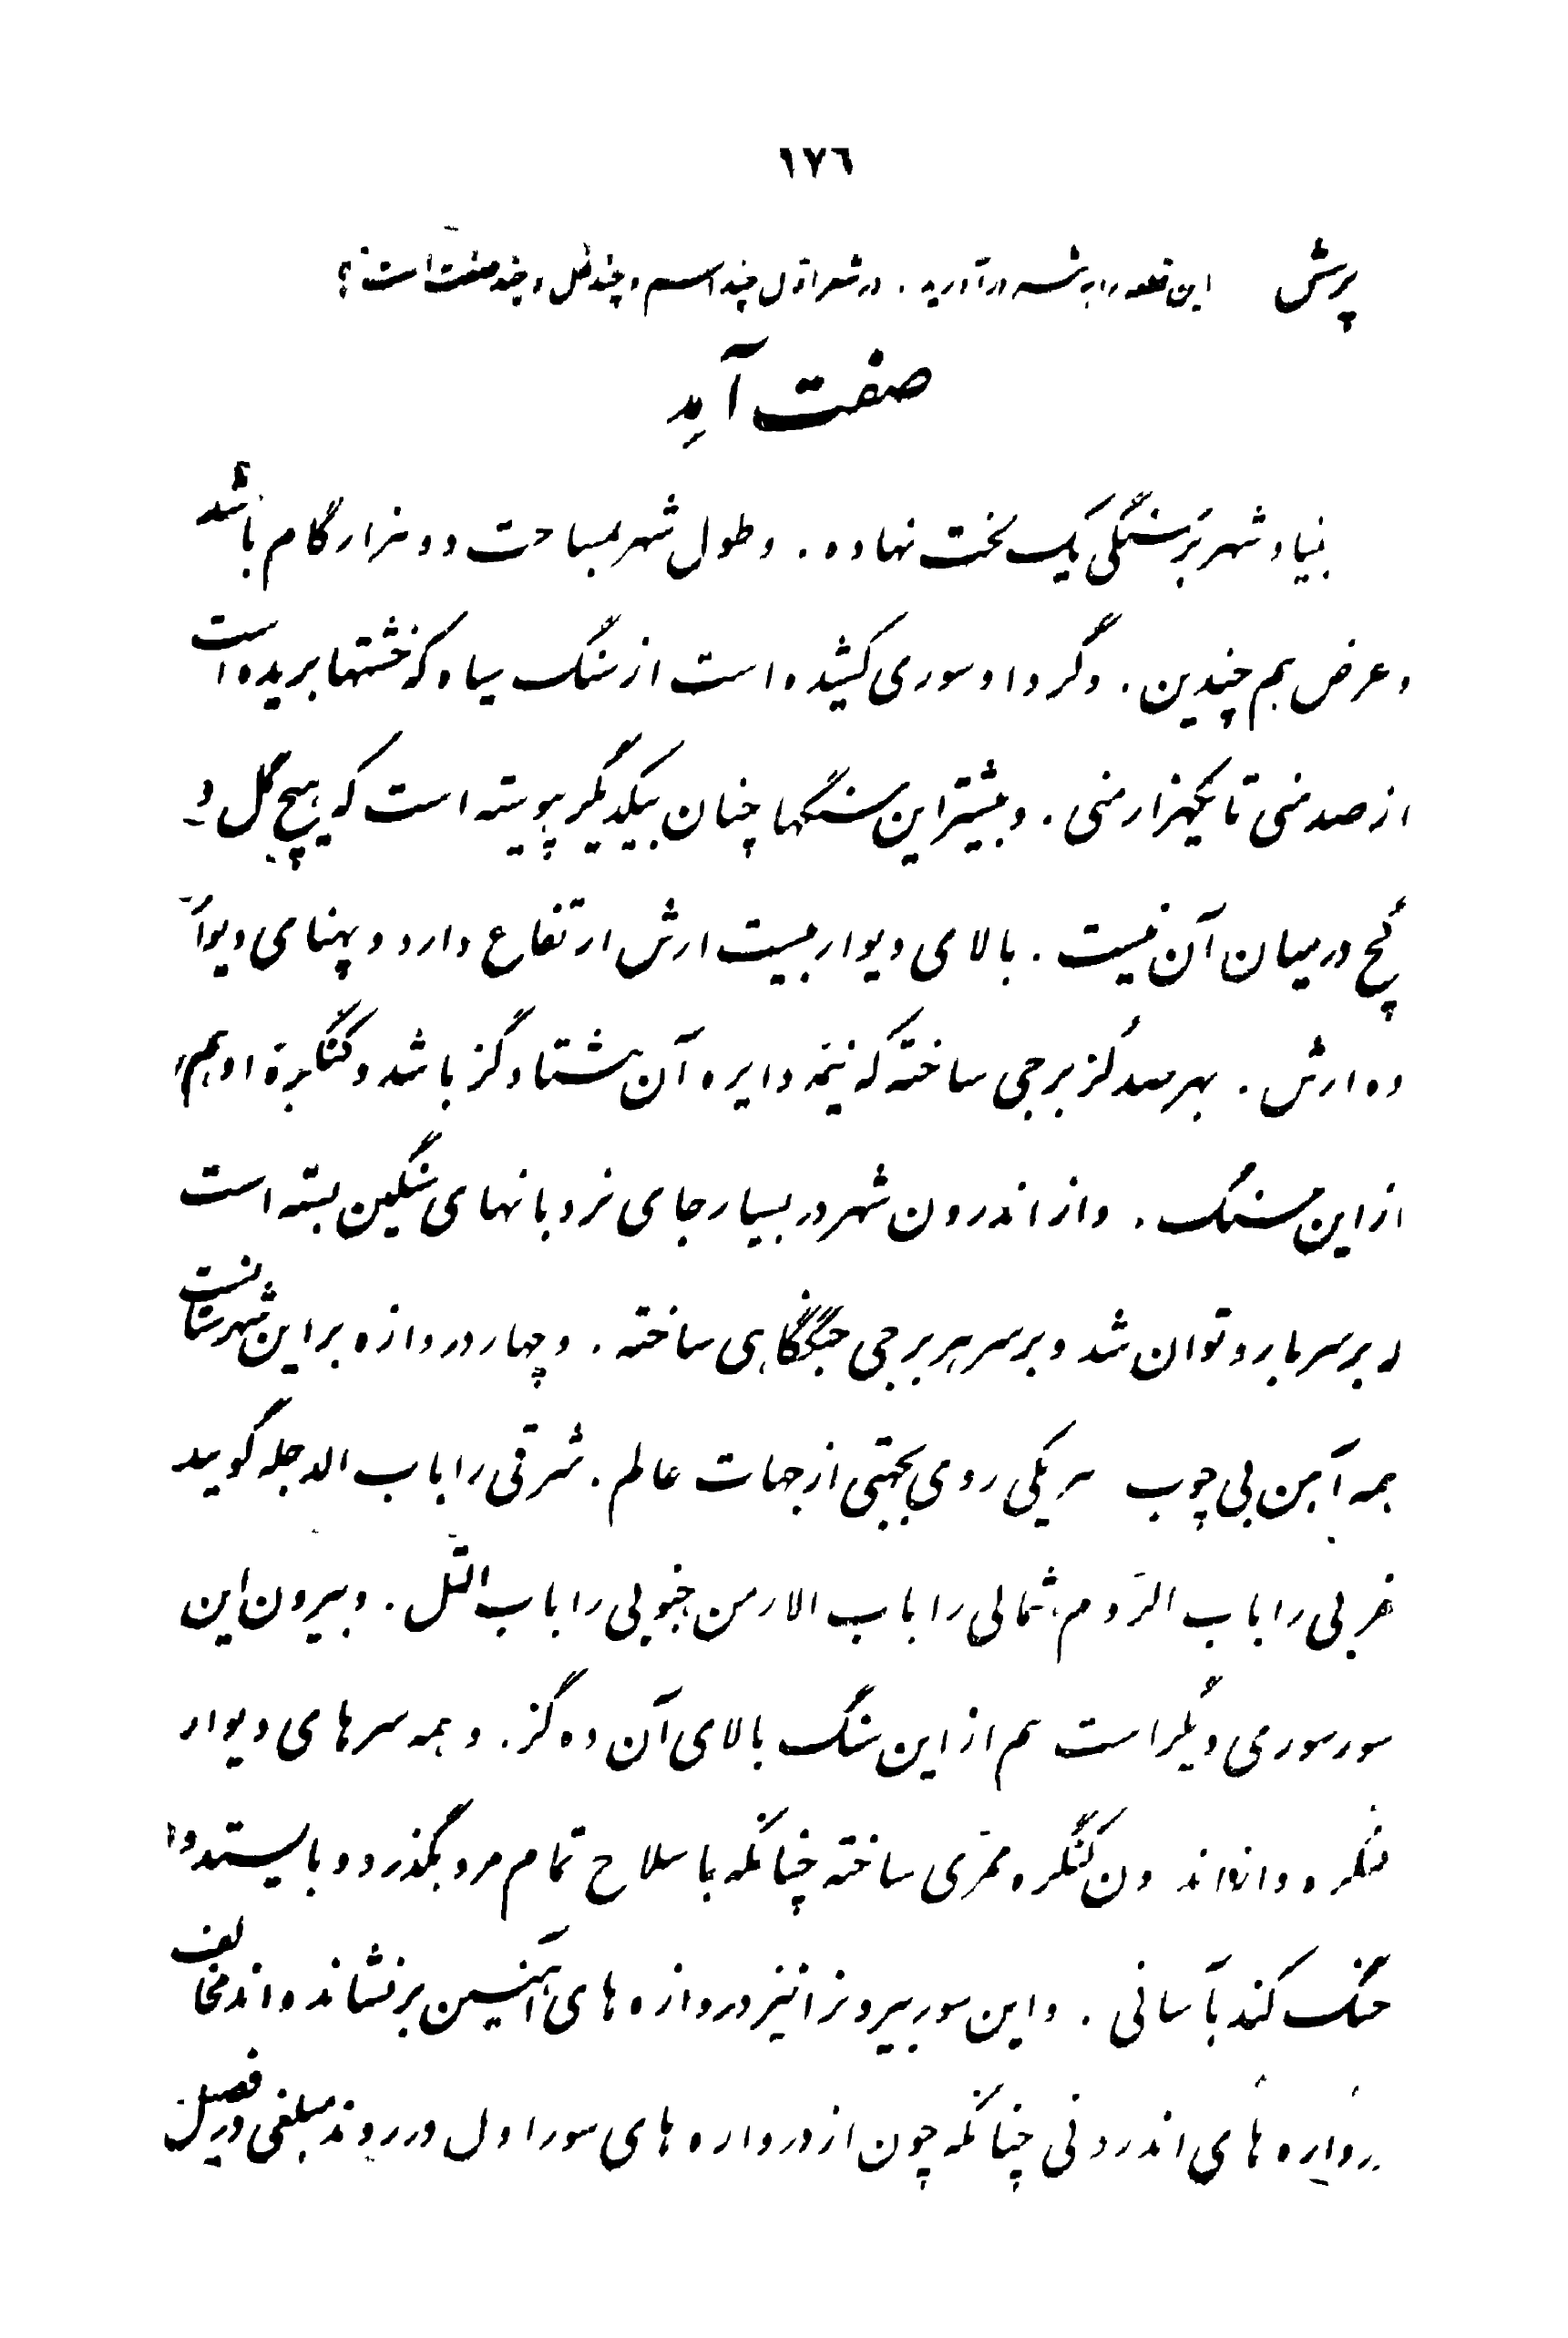 ١٧٦
پرسش این قطعه را به نثر درآورید . در شعر اول چند اسم و چند فعل و چند صفت است ؟
صفت آمِد
بنیاد شهر بر سنگی یک لخت نهاده . و طول شهر بمساحت دو هزار گام باشد
و عرض هم چندین . و گرد او سوری کشیده است از سنگ سیاه که خشتها بریده است
از صد منی تا یکهزار منی . و بیشتر این سنگها چنان بیکدیگر پیوسته است که هیچ گل و
گچ در میان آن نیست . بالای دیوار بیست ارش ارتفاع دارد و پهنای دیوار
ده ارش . بهر صد گز برجی ساخته که نیمه دایره آن هشتاد گز باشد و کنگرهٔ او هم
از این سنگ . و از اندرون شهر در بسیار جای نردبانهای سنگین بسته است
که بر سر بارو توان شد و بر سر هر برجی جنگگاهی ساخته . و چهار دروازه بر این شهرستانست
همه آهن بی چوب هر یکی روی بجهتی از جهات عالم . شرقی را باب الدجله گویند
غربی را باب الرّوم شمالی را باب الارمن جنوبی را باب التّل . و بیرون این
سور سوری دیگر است هم از این سنگ بالای آن ده گز . و همه سرهای دیوار
کنگره و اندرون کنگره ممرّی ساخته چنانکه با سلاح تمام مرد بگذرد و بایستد و
جنگ کند بآسانی . و این سور بیرونرا نیز دروازه های آهنین برنشانده اند مخالف
دروازه های اندرونی چنانکه چون از دروازه های سور اول در روند مبلغی در فصیل